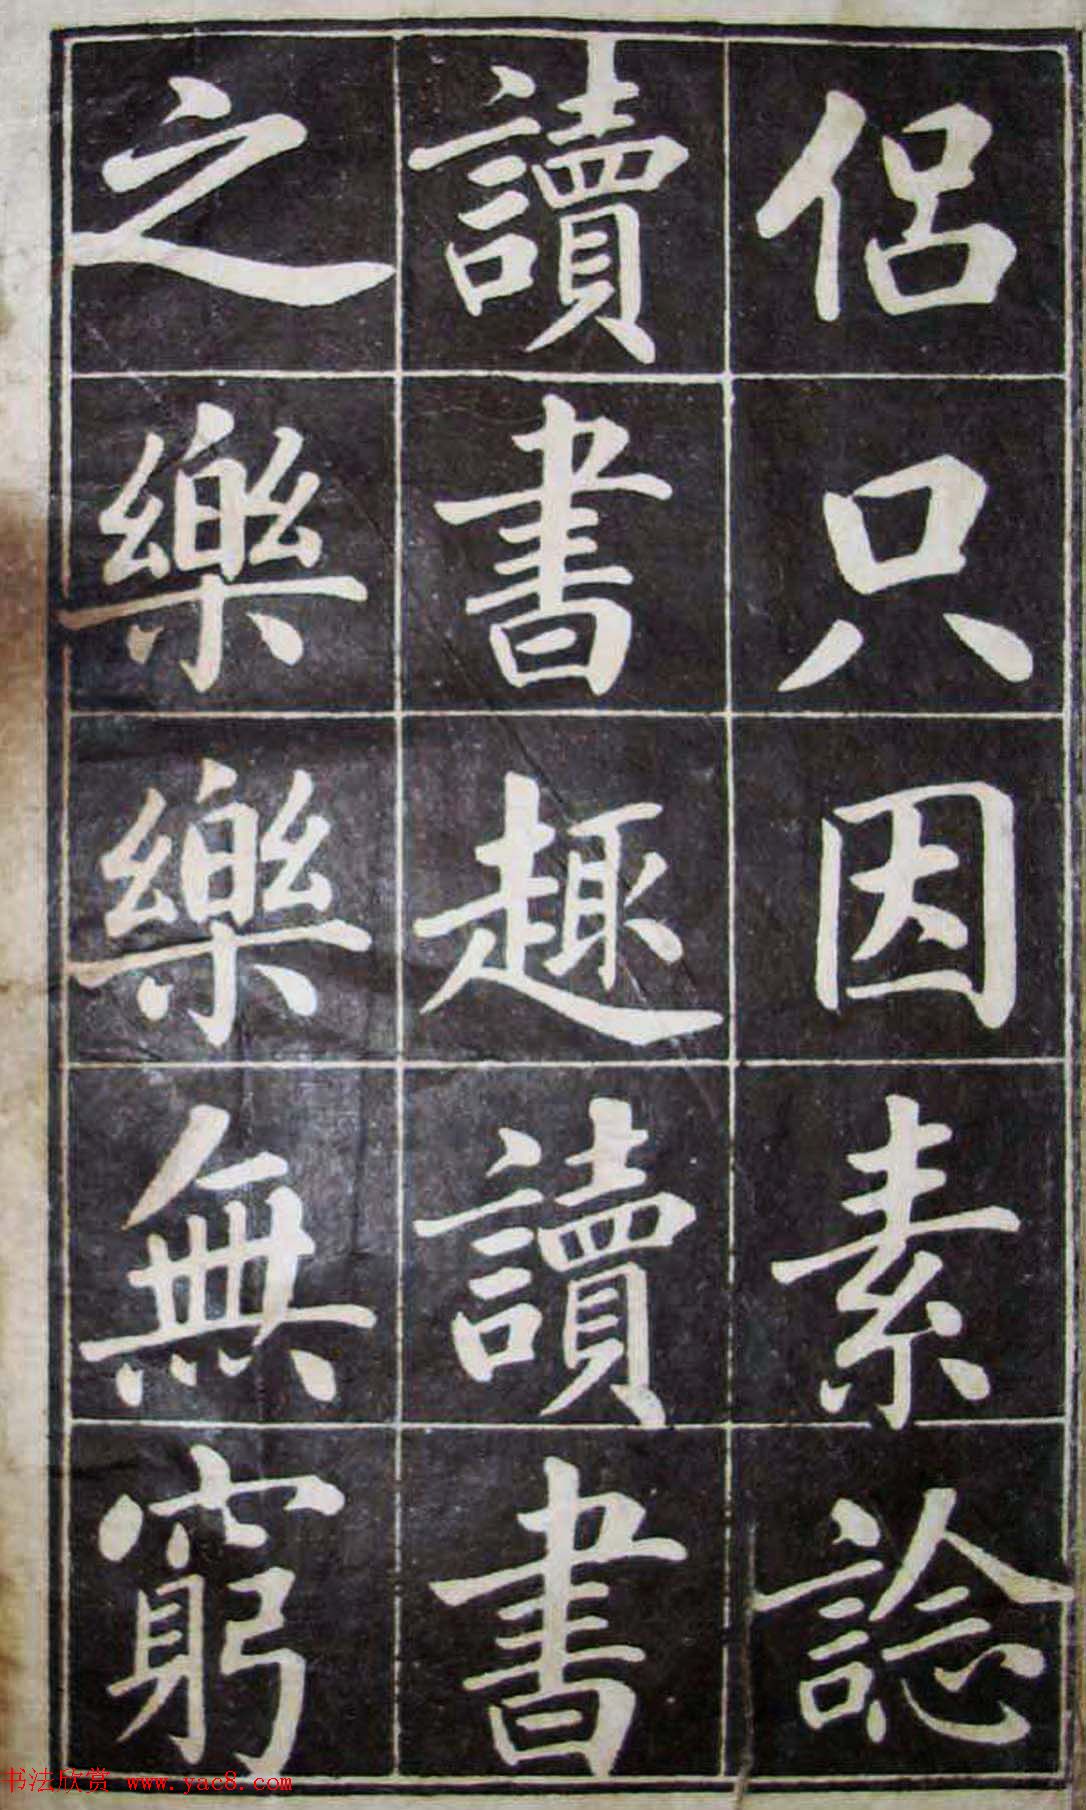 侶只因素諗
讀書趣讀書
之樂樂無窮
书法欣赏 www.yac8.com